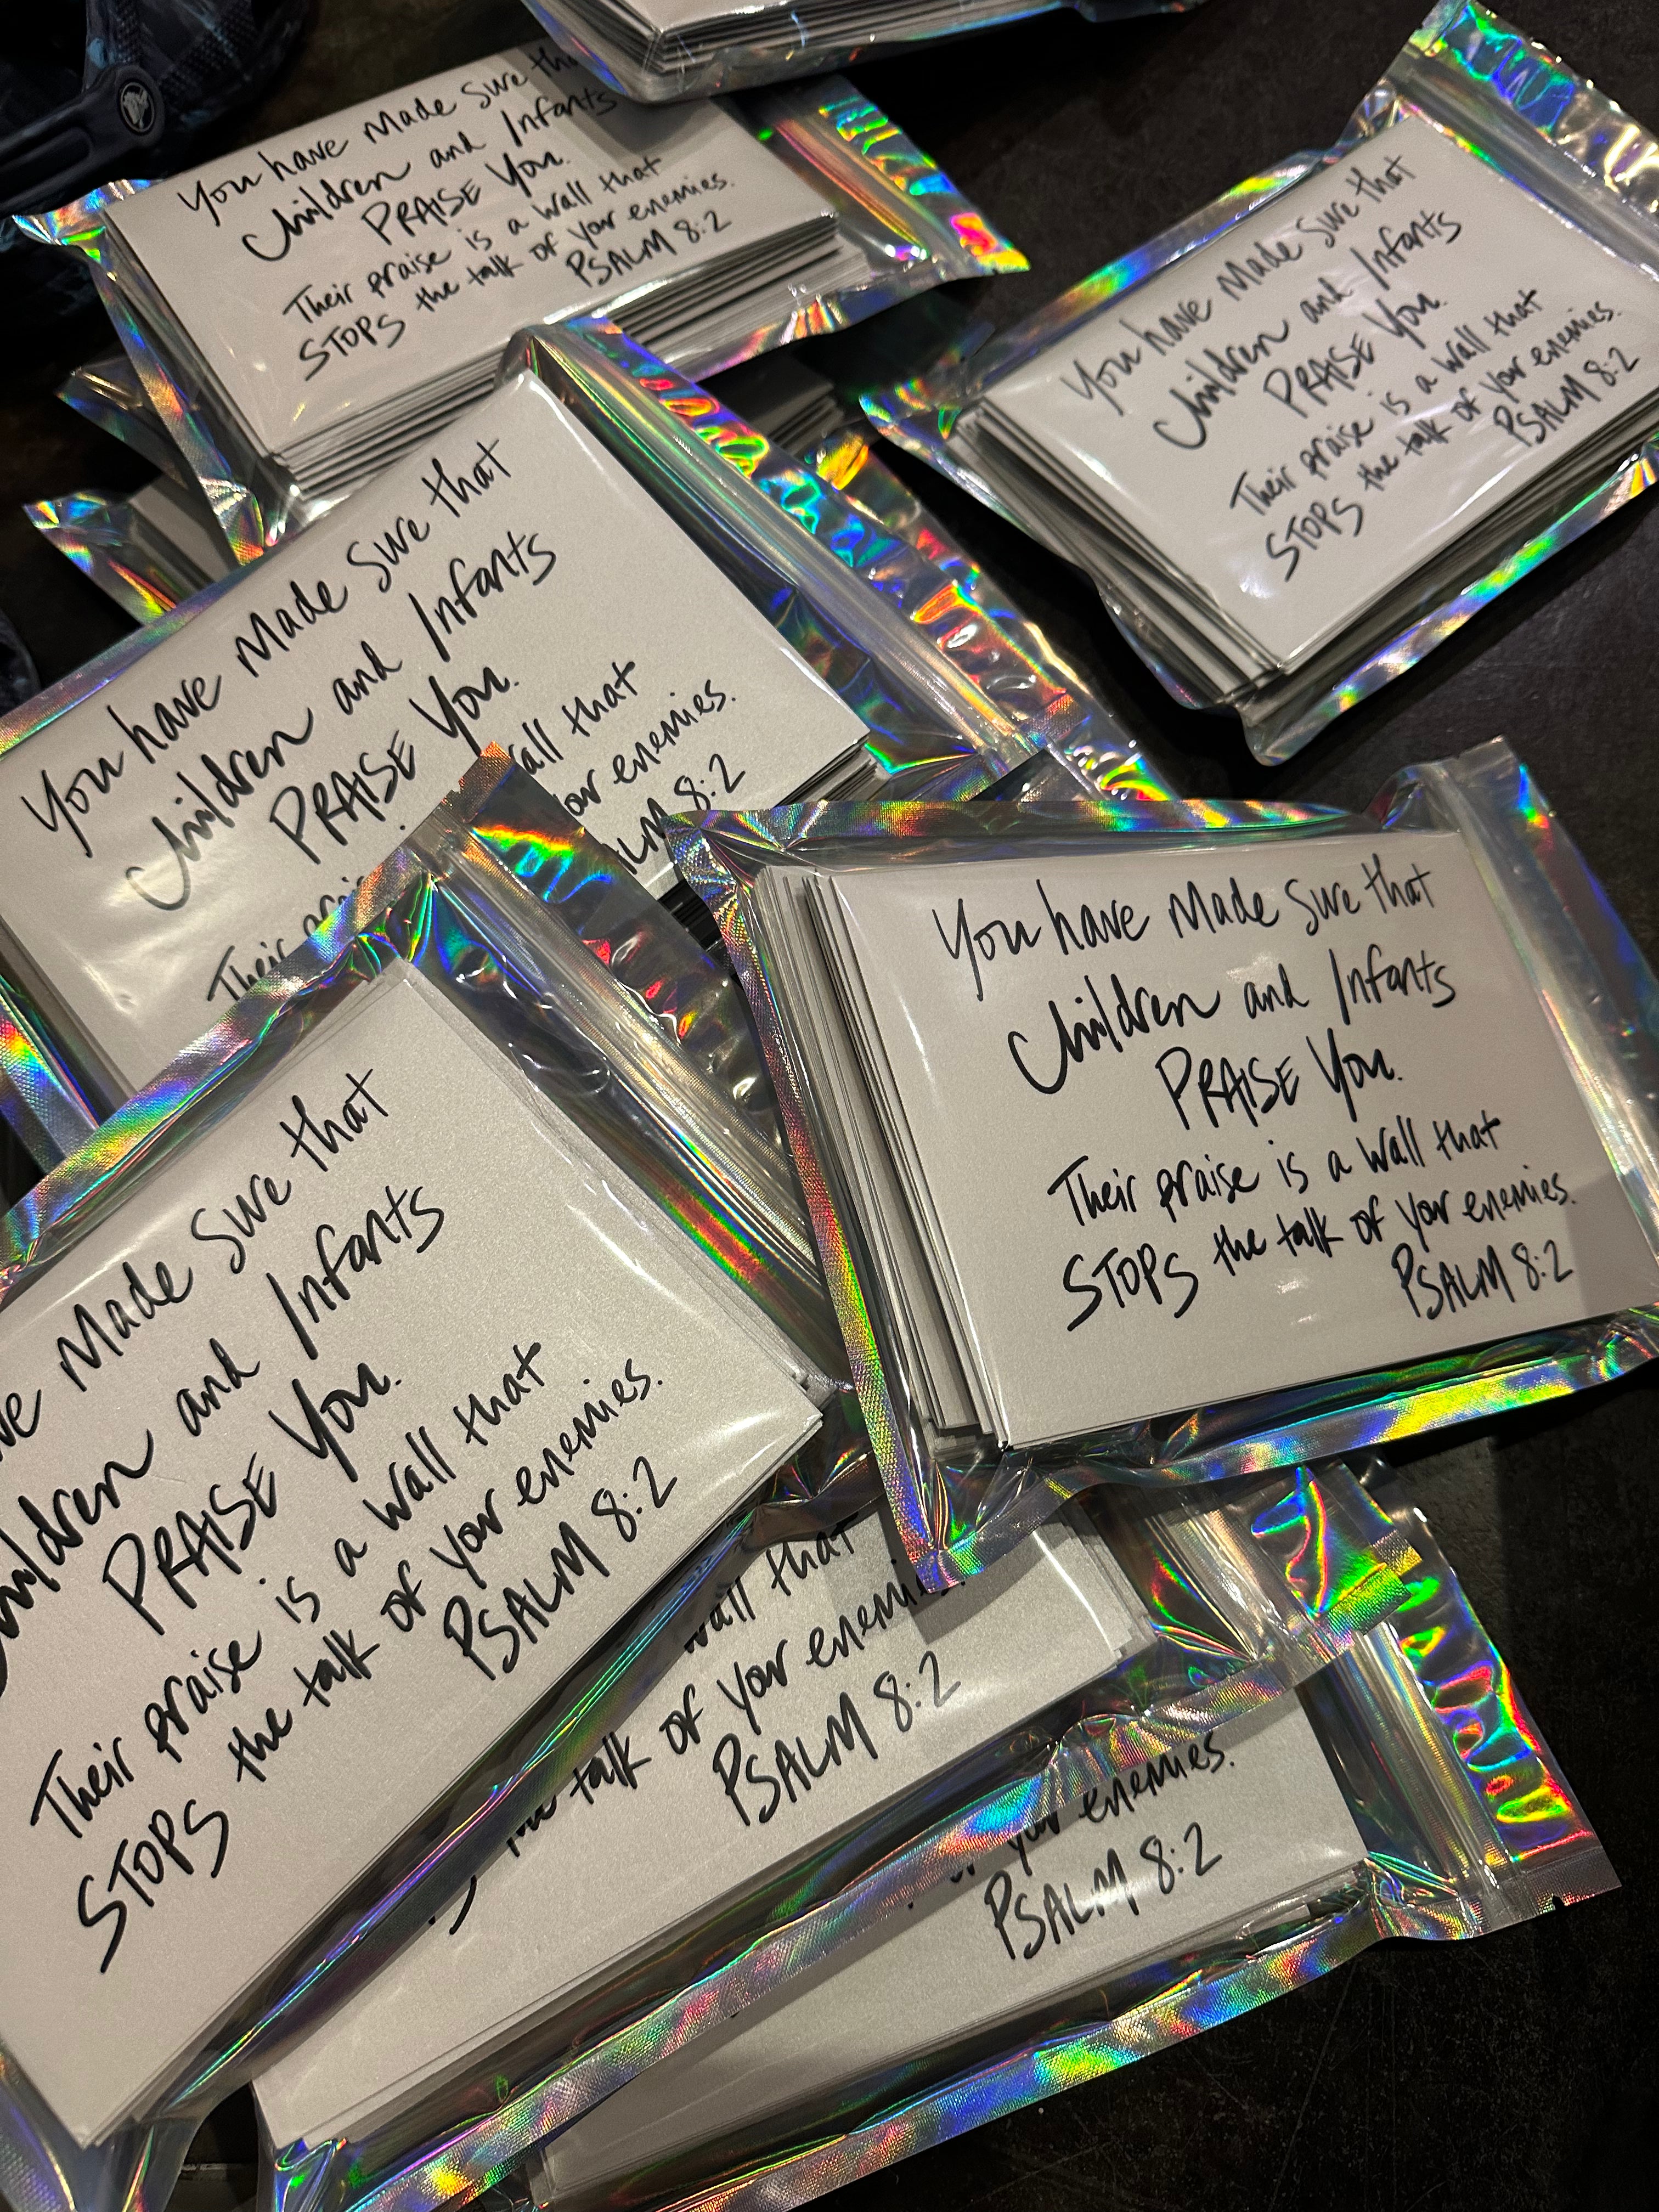 You have Made Sure
Children and Infants
PRAISE You.
Their praise is a wall that
STOPS the talk of your enemies.
PSALM 8:2
You have Made Sure that
Children and Infants
PRAISE You.
Their praise is a wall that
STOPS the talk of your enemies.
PSALM 8:2
You have Made Sure that
Children and Infants
PRAISE You.
Their wall that
your enemies.
8:2
You have Made Sure that
Children and Infants
PRAISE You.
Their praise is a wall that
STOPS the talk of your enemies.
PSALM 8:2
Made Sure that
and Infants
PRAISE You.
Their praise is a wall that
STOPS the talk of your enemies.
PSALM 8:2
wall that
talk of your
PSALM 8:2
your enemies.
PSALM 8:2